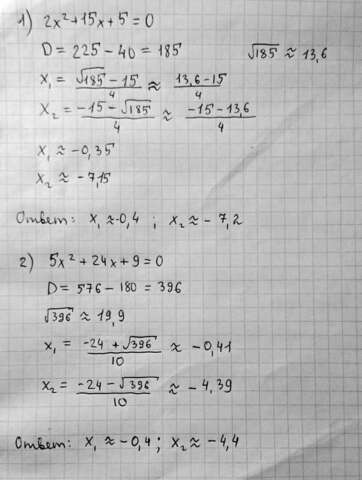 1) 2x² + 15x + 5 = 0
D = 225 - 40 = 185 √185 ≈ 13,6
x₁ = (√185 - 15)/4 ≈ (13,6 - 15)/4
x₂ = (-15 - √185)/4 ≈ (-15 - 13,6)/4
x₁ ≈ -0,35
x₂ ≈ -7,15
Ответ: x₁ ≈ -0,4 ; x₂ ≈ -7,2
2) 5x² + 24x + 9 = 0
D = 576 - 180 = 396
√396 ≈ 19,9
x₁ = (-24 + √396)/10 ≈ -0,41
x₂ = (-24 - √396)/10 ≈ -4,39
Ответ: x₁ ≈ -0,4 ; x₂ ≈ -4,4